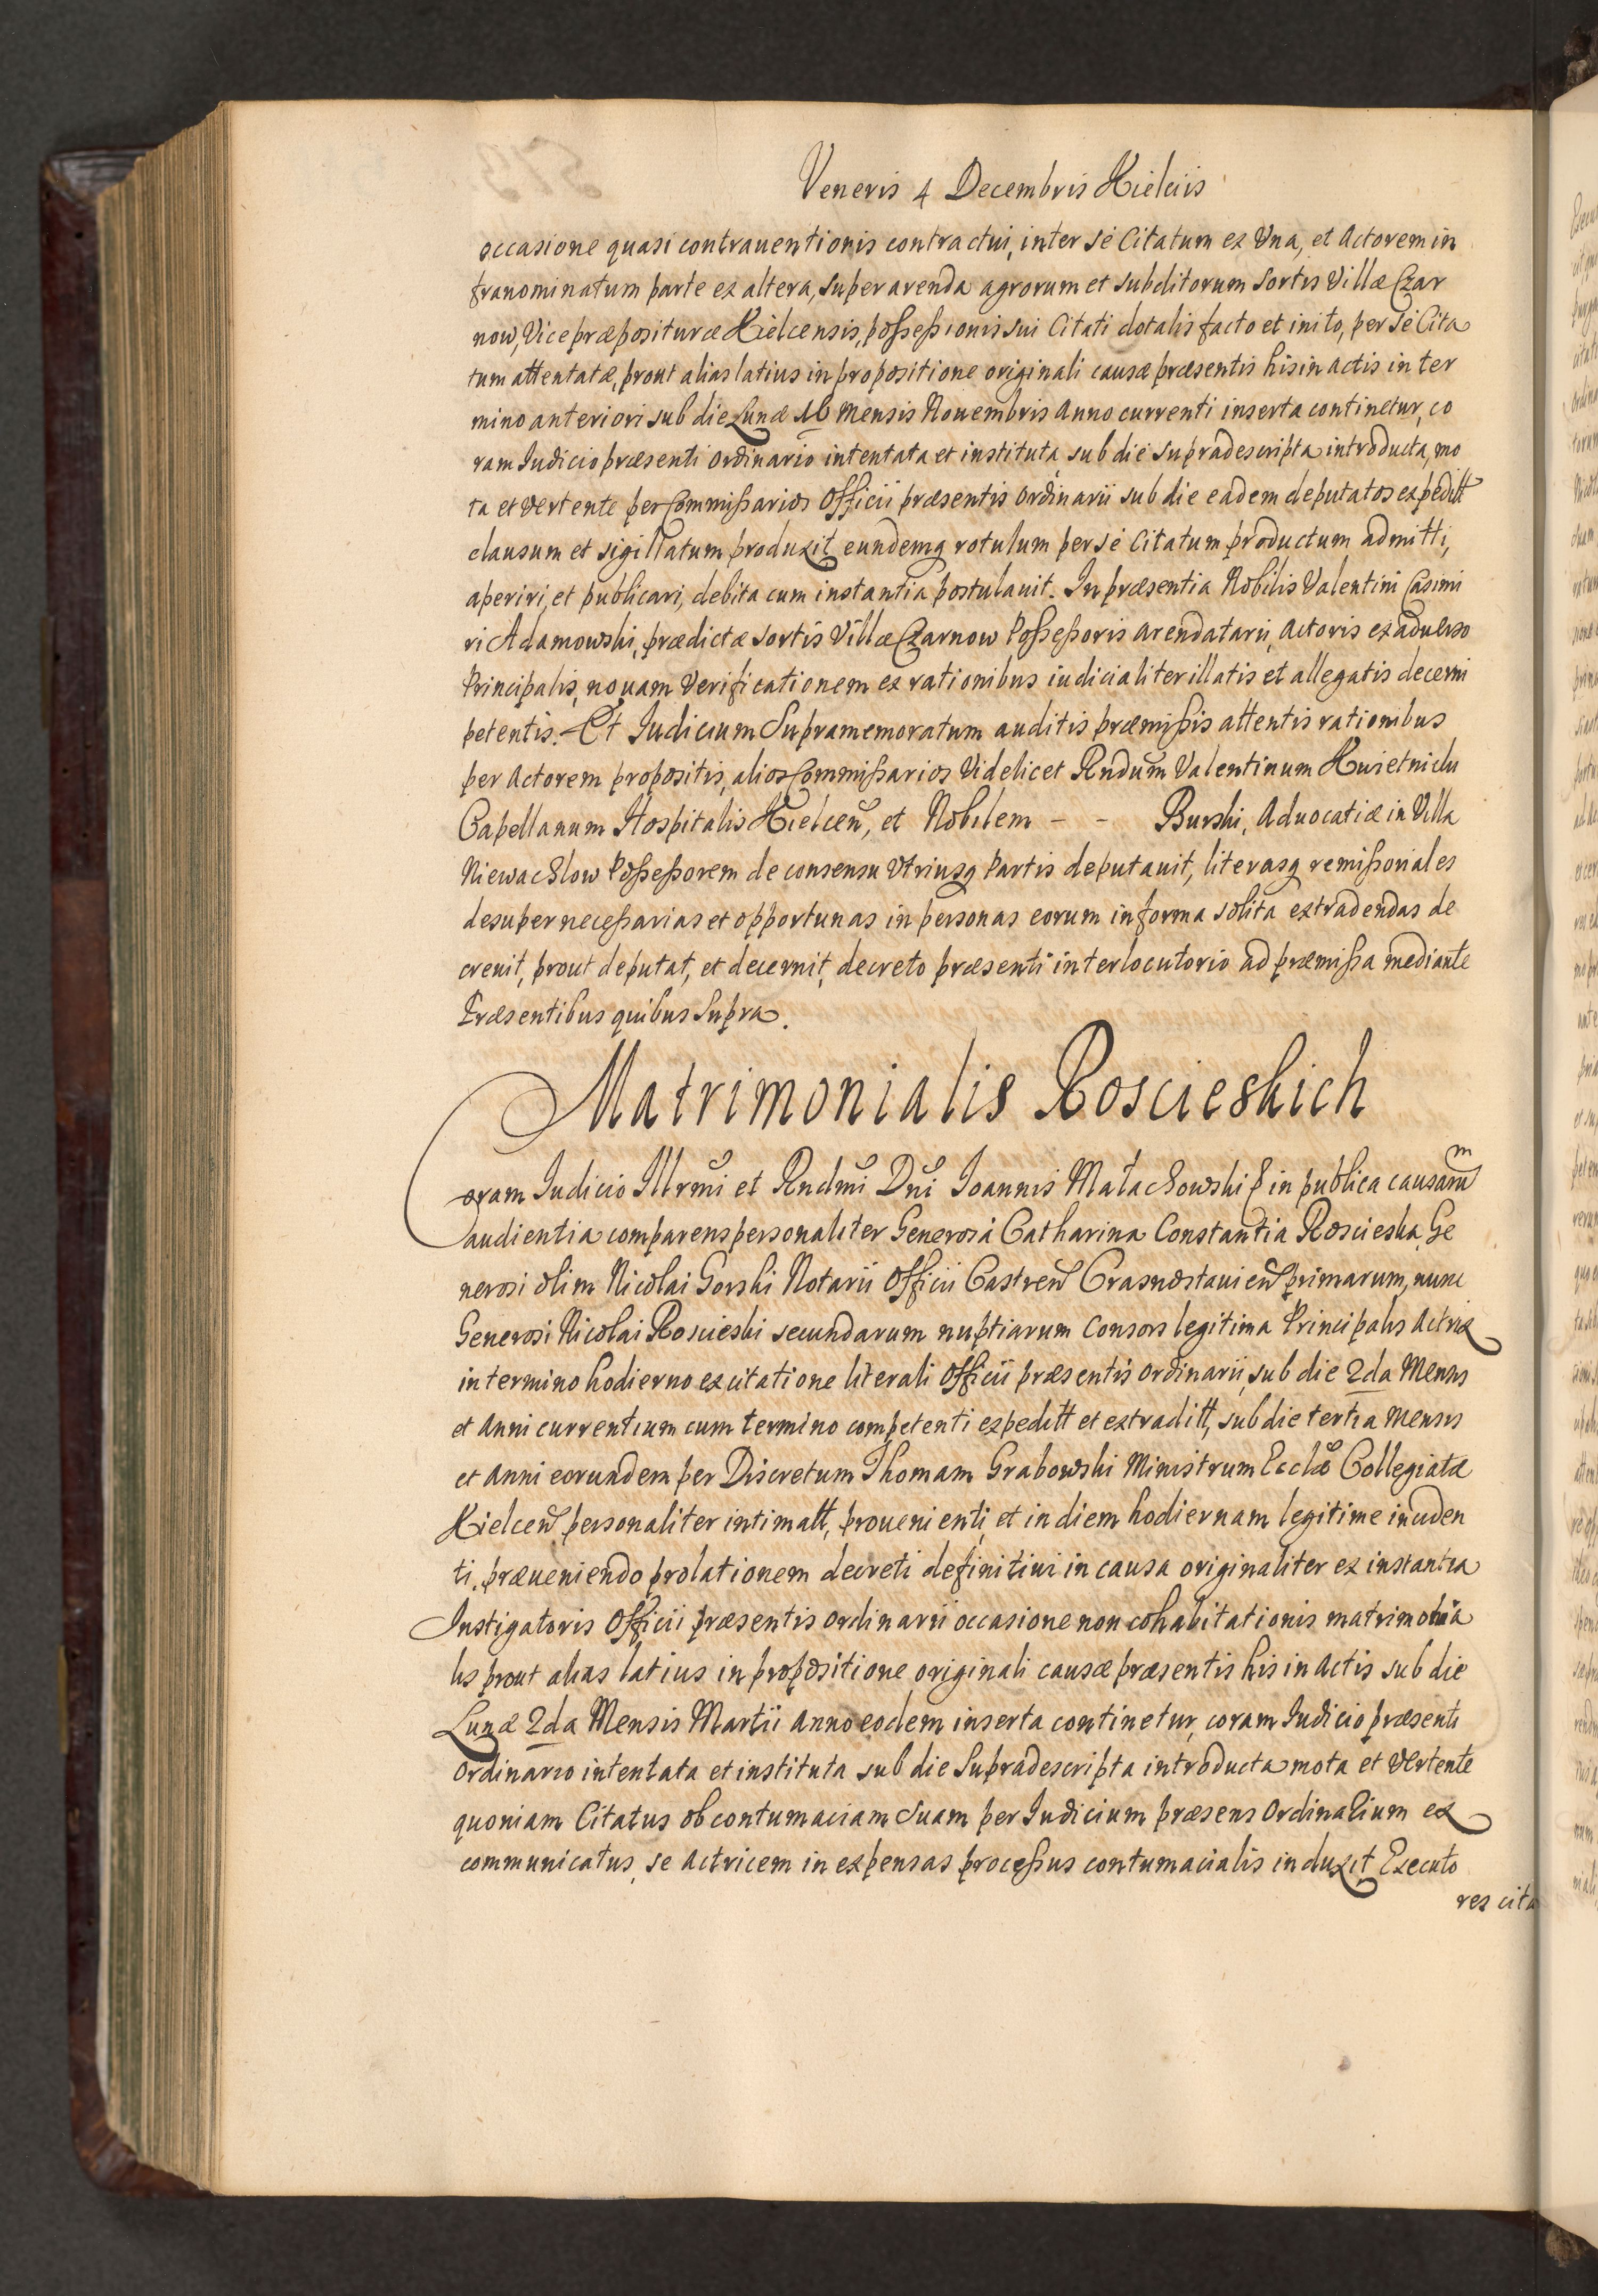 Veneris 4 Decembris Kielciis
occasione quasi contrauentionis contractui, inter se Citatum ex Vna, et Actorem in
franominatum parte ex altera, super arenda agrorum et subditorum Sortis Villæ Czar
now, Vice præposituræ Kielcensis, possessionis sui Citati dotalis facto et inito, per se Cita
tum attentatæ, prout alias latius in propositione originali causæ præsentis his in actis in ter
mino anteriori sub die Lunæ 16 Mensis Nouembris Anno currenti inserta continetur, co
ram Iudicio præsenti ordinario intentata et instituta, sub die supradescripta introducta, mo
ta et vertente per Commissarios Officii præsentis ordinarii sub die eadem deputatos expeditt
clausum et sigillatum produxit eundemq rotulum per se Citatum productum admitti,
aperiri, et publicari, debita cum instantia postulauit. In præsentia Nobilis Valentini Casimi
ri Adamowski, prædictæ sortis Villæ Czarnow Possessoris arendatarii, Actoris ex aduerso
Principalis, nouam Verificationem ex rationibus iudicialiter illatis et allegatis decerni
petentis. Et Iudicium Supramemoratum auditis præmissis attentis rationibus
per Actorem propositis, alios Commissarios Videlicet Rndum Valentinum Kwietniclu
Capellanum Hospitalis Kielcen, et Nobilem - - Burski, Aduocatiæ in Villa
Niewachlow Possessorem de consensu Vtriusq Partis deputauit, literasq remissoriales
desuper necessarias et opportunas in personas eorum in forma solita extradendas de
creuit, prout deputat, et decernit, decreto præsenti interlocutorio ad præmissa mediante
Præsentibus quibus supra.
Matrimonialis Roscieskich
Coram Iudicio Illrmi et Rndmi Dni Ioannis Małachowski P in publica causarum
audientia comparens personaliter Generosa Catharina Constantia Roscieska, Ge
nerosi olim Nicolai Gorski Notarii Officii Castren Crasnostauien primarum, nunc
Generosi Nicolai Roscieski secundarum nuptiarum Consors legitima Principalis Actrix
in termino hodierno ex citatione literali Officii præsentis ordinarii, sub die 2da Mensis
et Anni currentium cum termino competenti expeditt et extraditt, sub die tertia Mensis
et Anni eorundem per Discretum Thomam Grabowski Ministrum Ecclæ Collegiatæ
Kielcen personaliter intimatt, prouenienti, et in diem hodiernam legitime inciden
ti, præueniendo prolationem decreti definitiui in causa originaliter ex instantia
Instigatoris Officii præsentis ordinarii occasione non cohabitationis matrimonia
lis prout alias latius in propositione originali causæ præsentis his in Actis sub die
Lunæ 2da Mensis Martii Anno eodem inserta continetur, coram Iudicio præsenti
ordinario intentata et instituta sub die supradescripta introducta mota et vertente
quoniam Citatus ob contumaciam suam per Iudicium præsens Ordinarium ex
communicatus, se actricem in expensas processus contumacialis induxit Executo
res cita